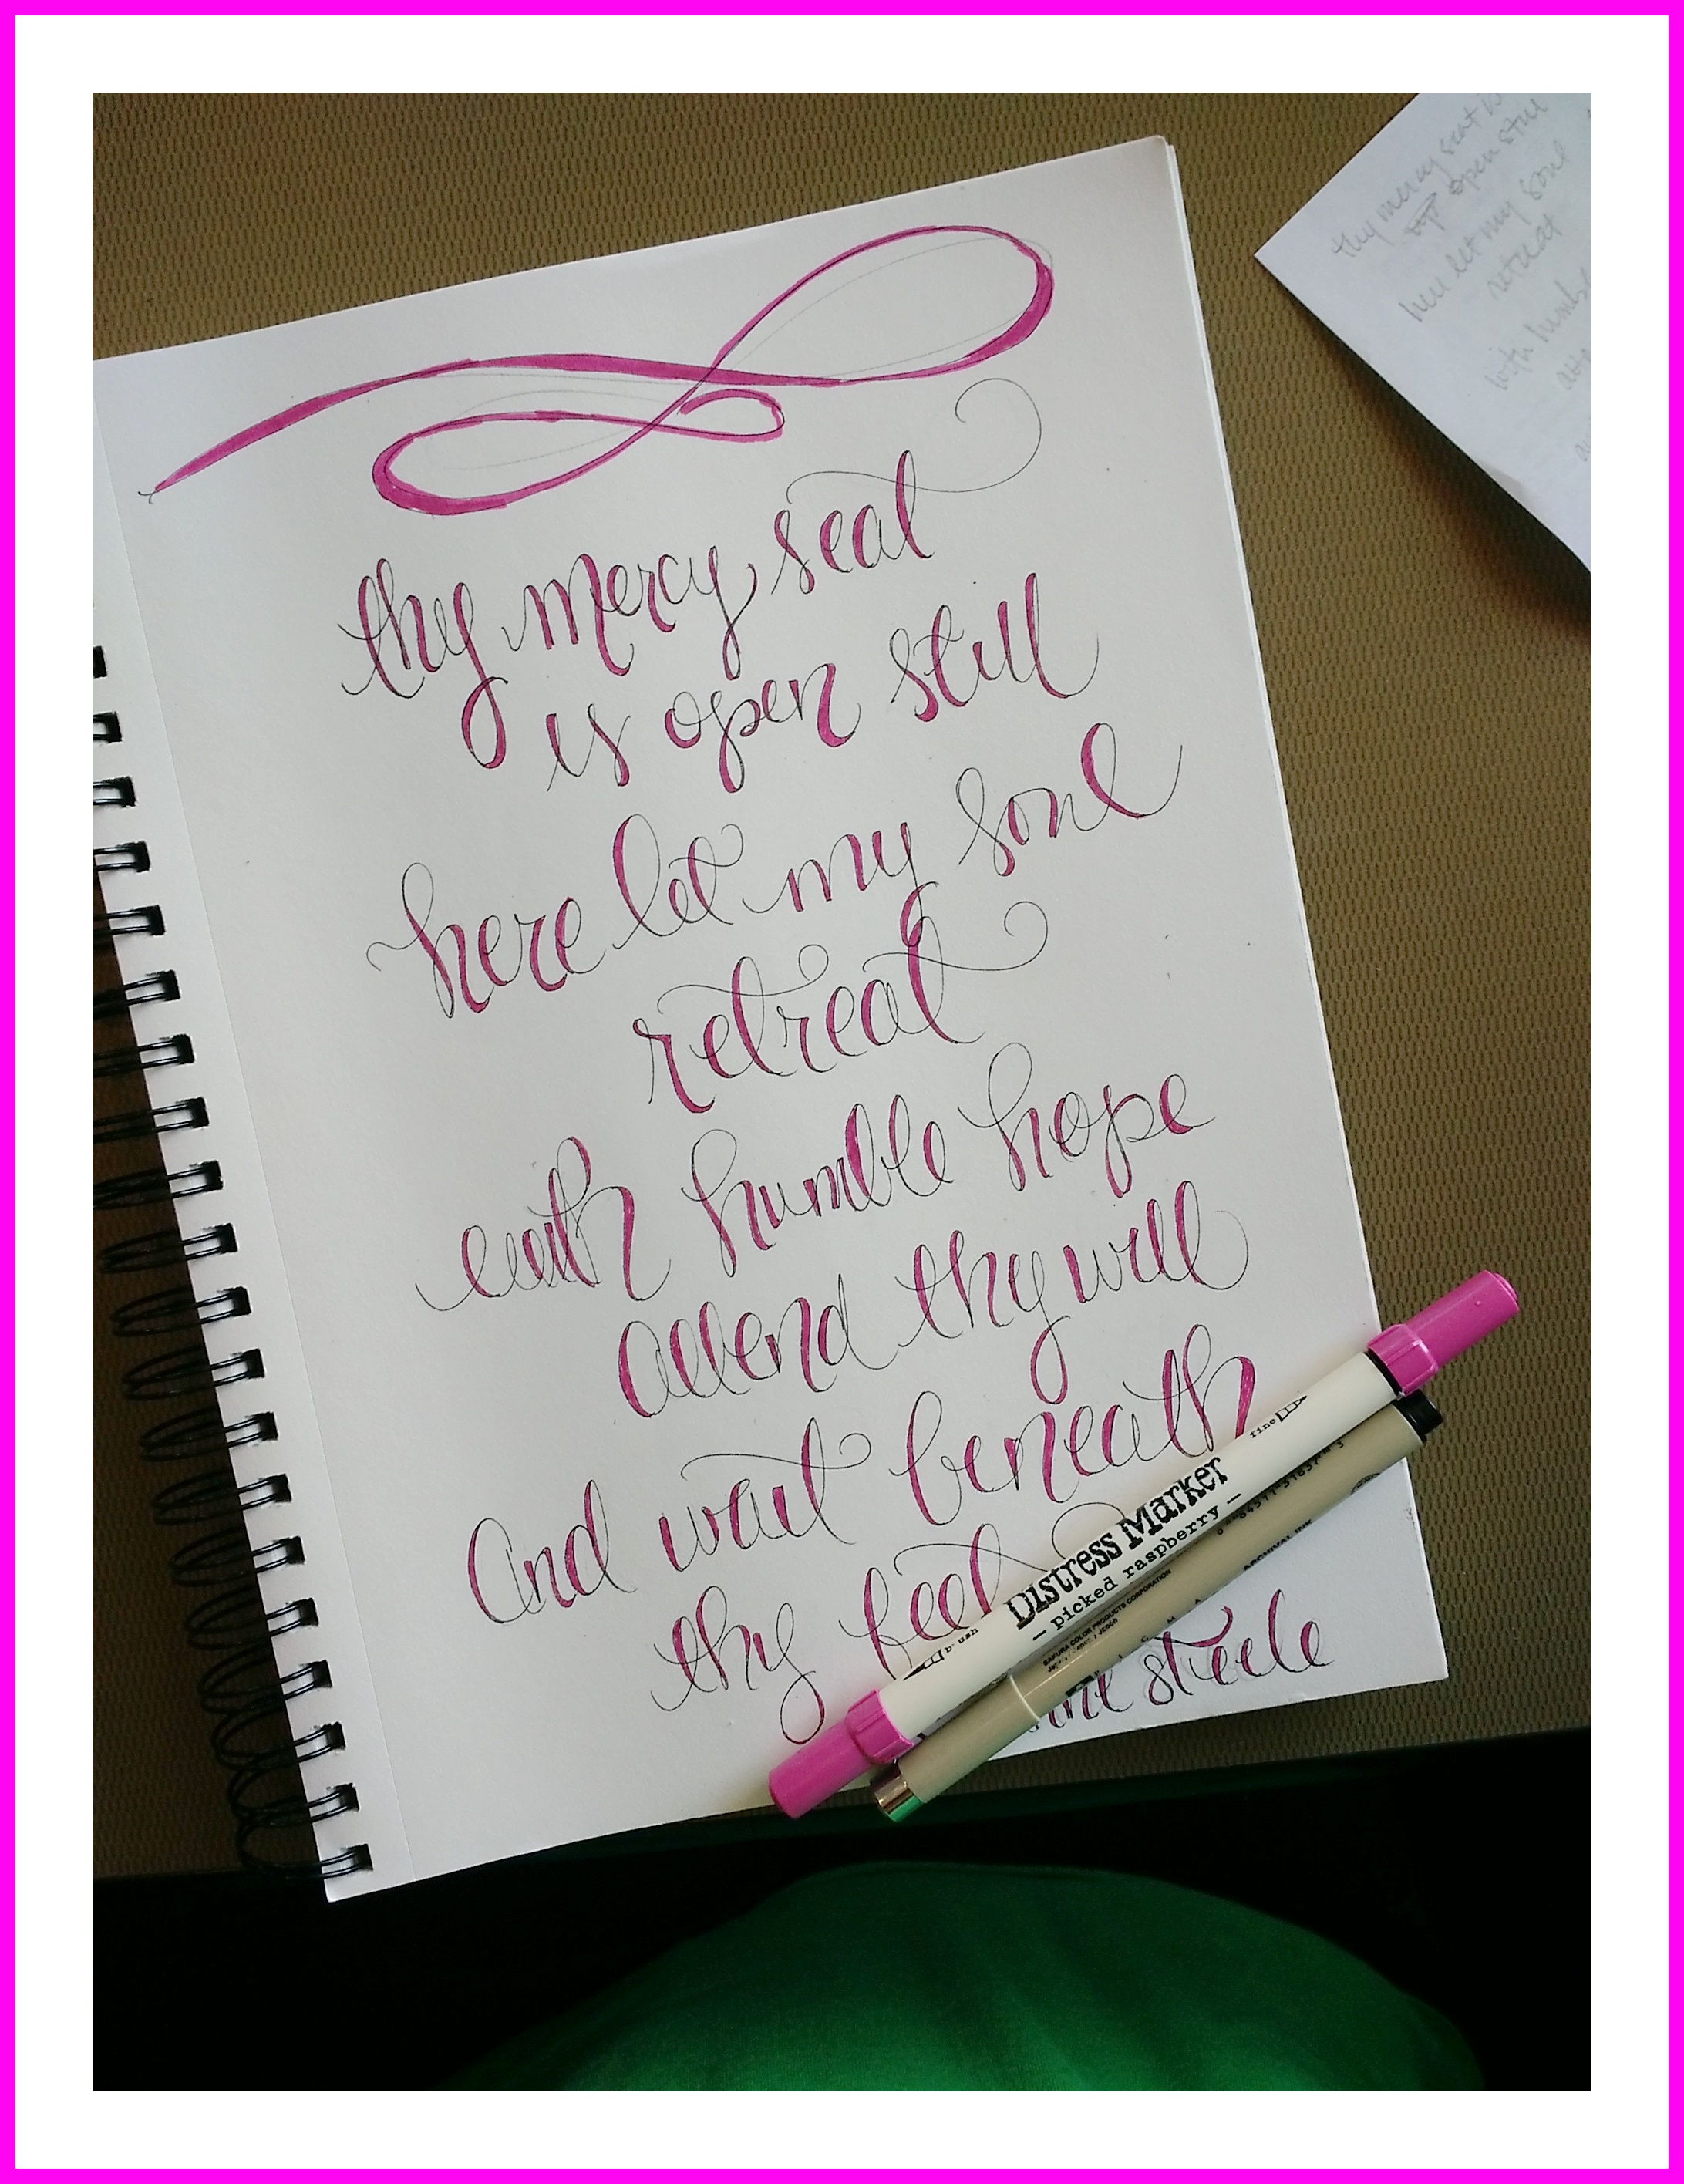 thy mercy seat
is open still
here let my soul
retreat
with humble hope
attend thy will
and wait beneath
thy feet
steele
Distress Marker
– picked raspberry –
fine
brush
SAKURA COLOR PRODUCTS CORPORATION
ARCHIVAL INK
thy mercy seat is
open still
here let my soul
retreat
with humbl